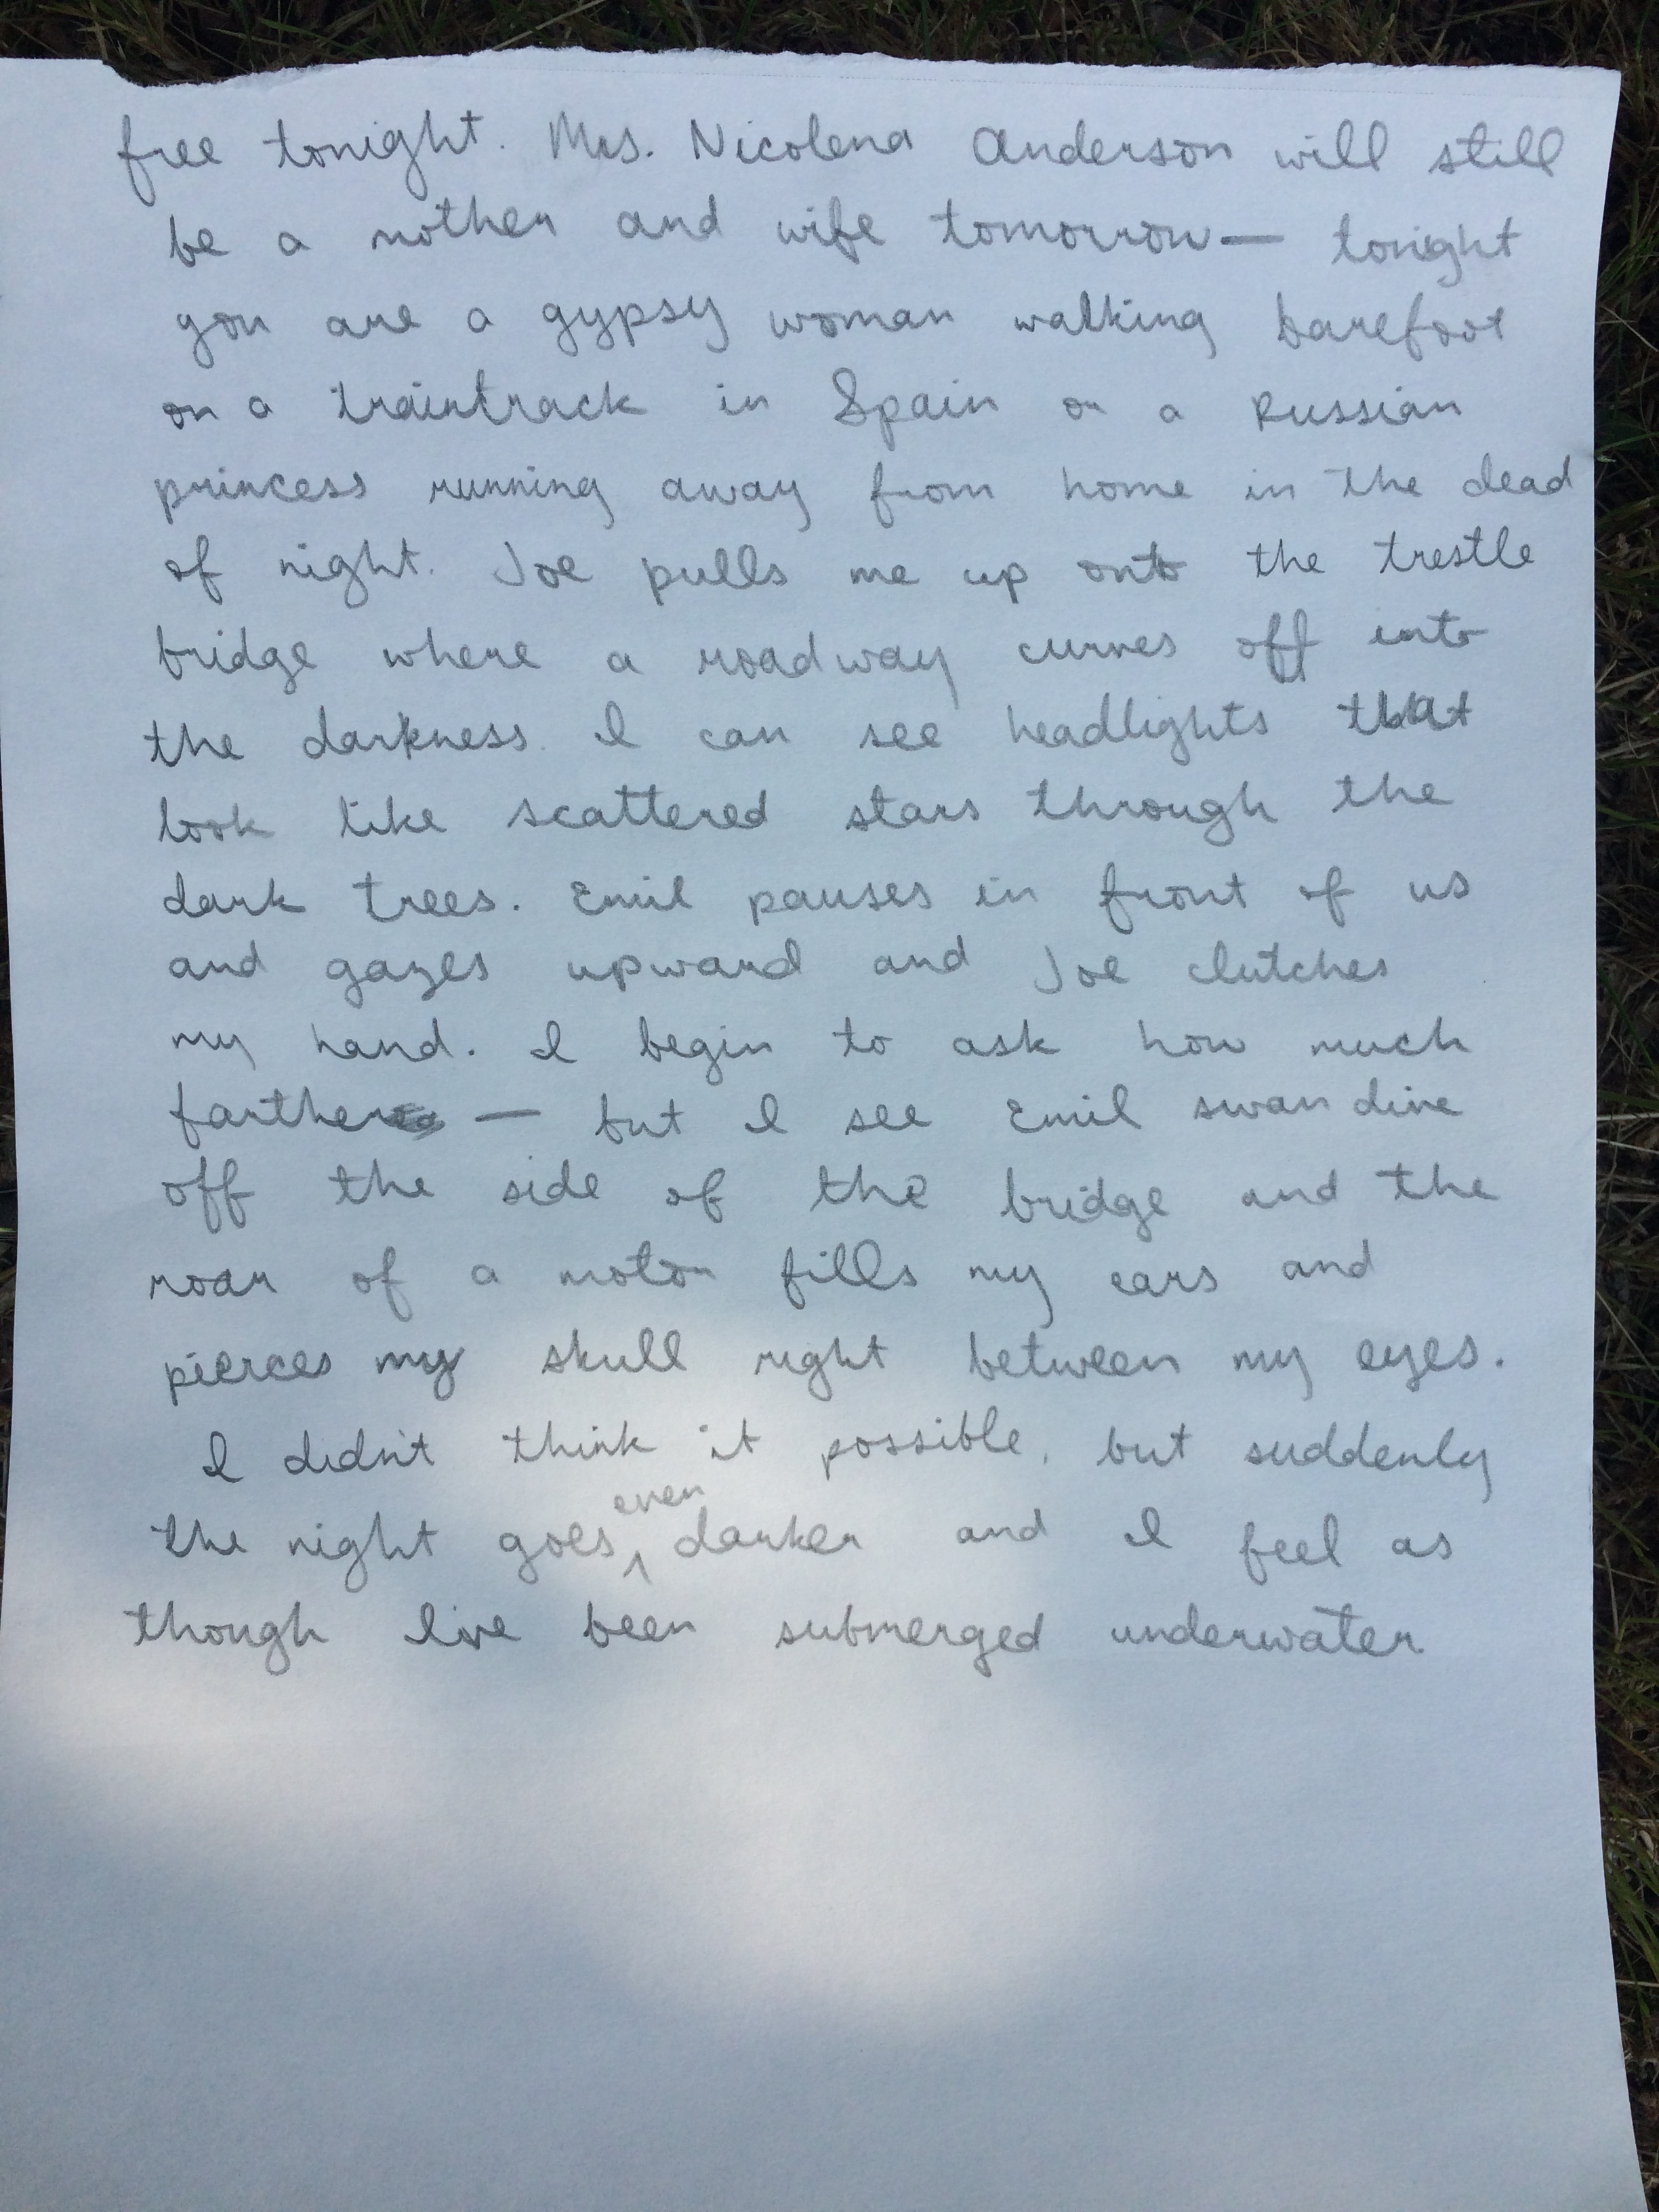 free tonight. Mrs. Nicolena Anderson will still
be a mother and wife tomorrow— tonight
you are a gypsy woman walking barefoot
on a traintrack in Spain or a Russian
princess running away from home in the dead
of night. Joe pulls me up onto the trestle
bridge where a roadway curves off into
the darkness. I can see headlights that
look like scattered stars through the
dark trees. Emil pauses in front of us
and gazes upward and Joe clutches
my hand. I begin to ask how much
farther — but I see Emil swan dive
off the side of the bridge and the
roar of a motor fills my ears and
pierces my skull right between my eyes.
I didn't think it possible, but suddenly
the night goes even darker and I feel as
though I've been submerged underwater